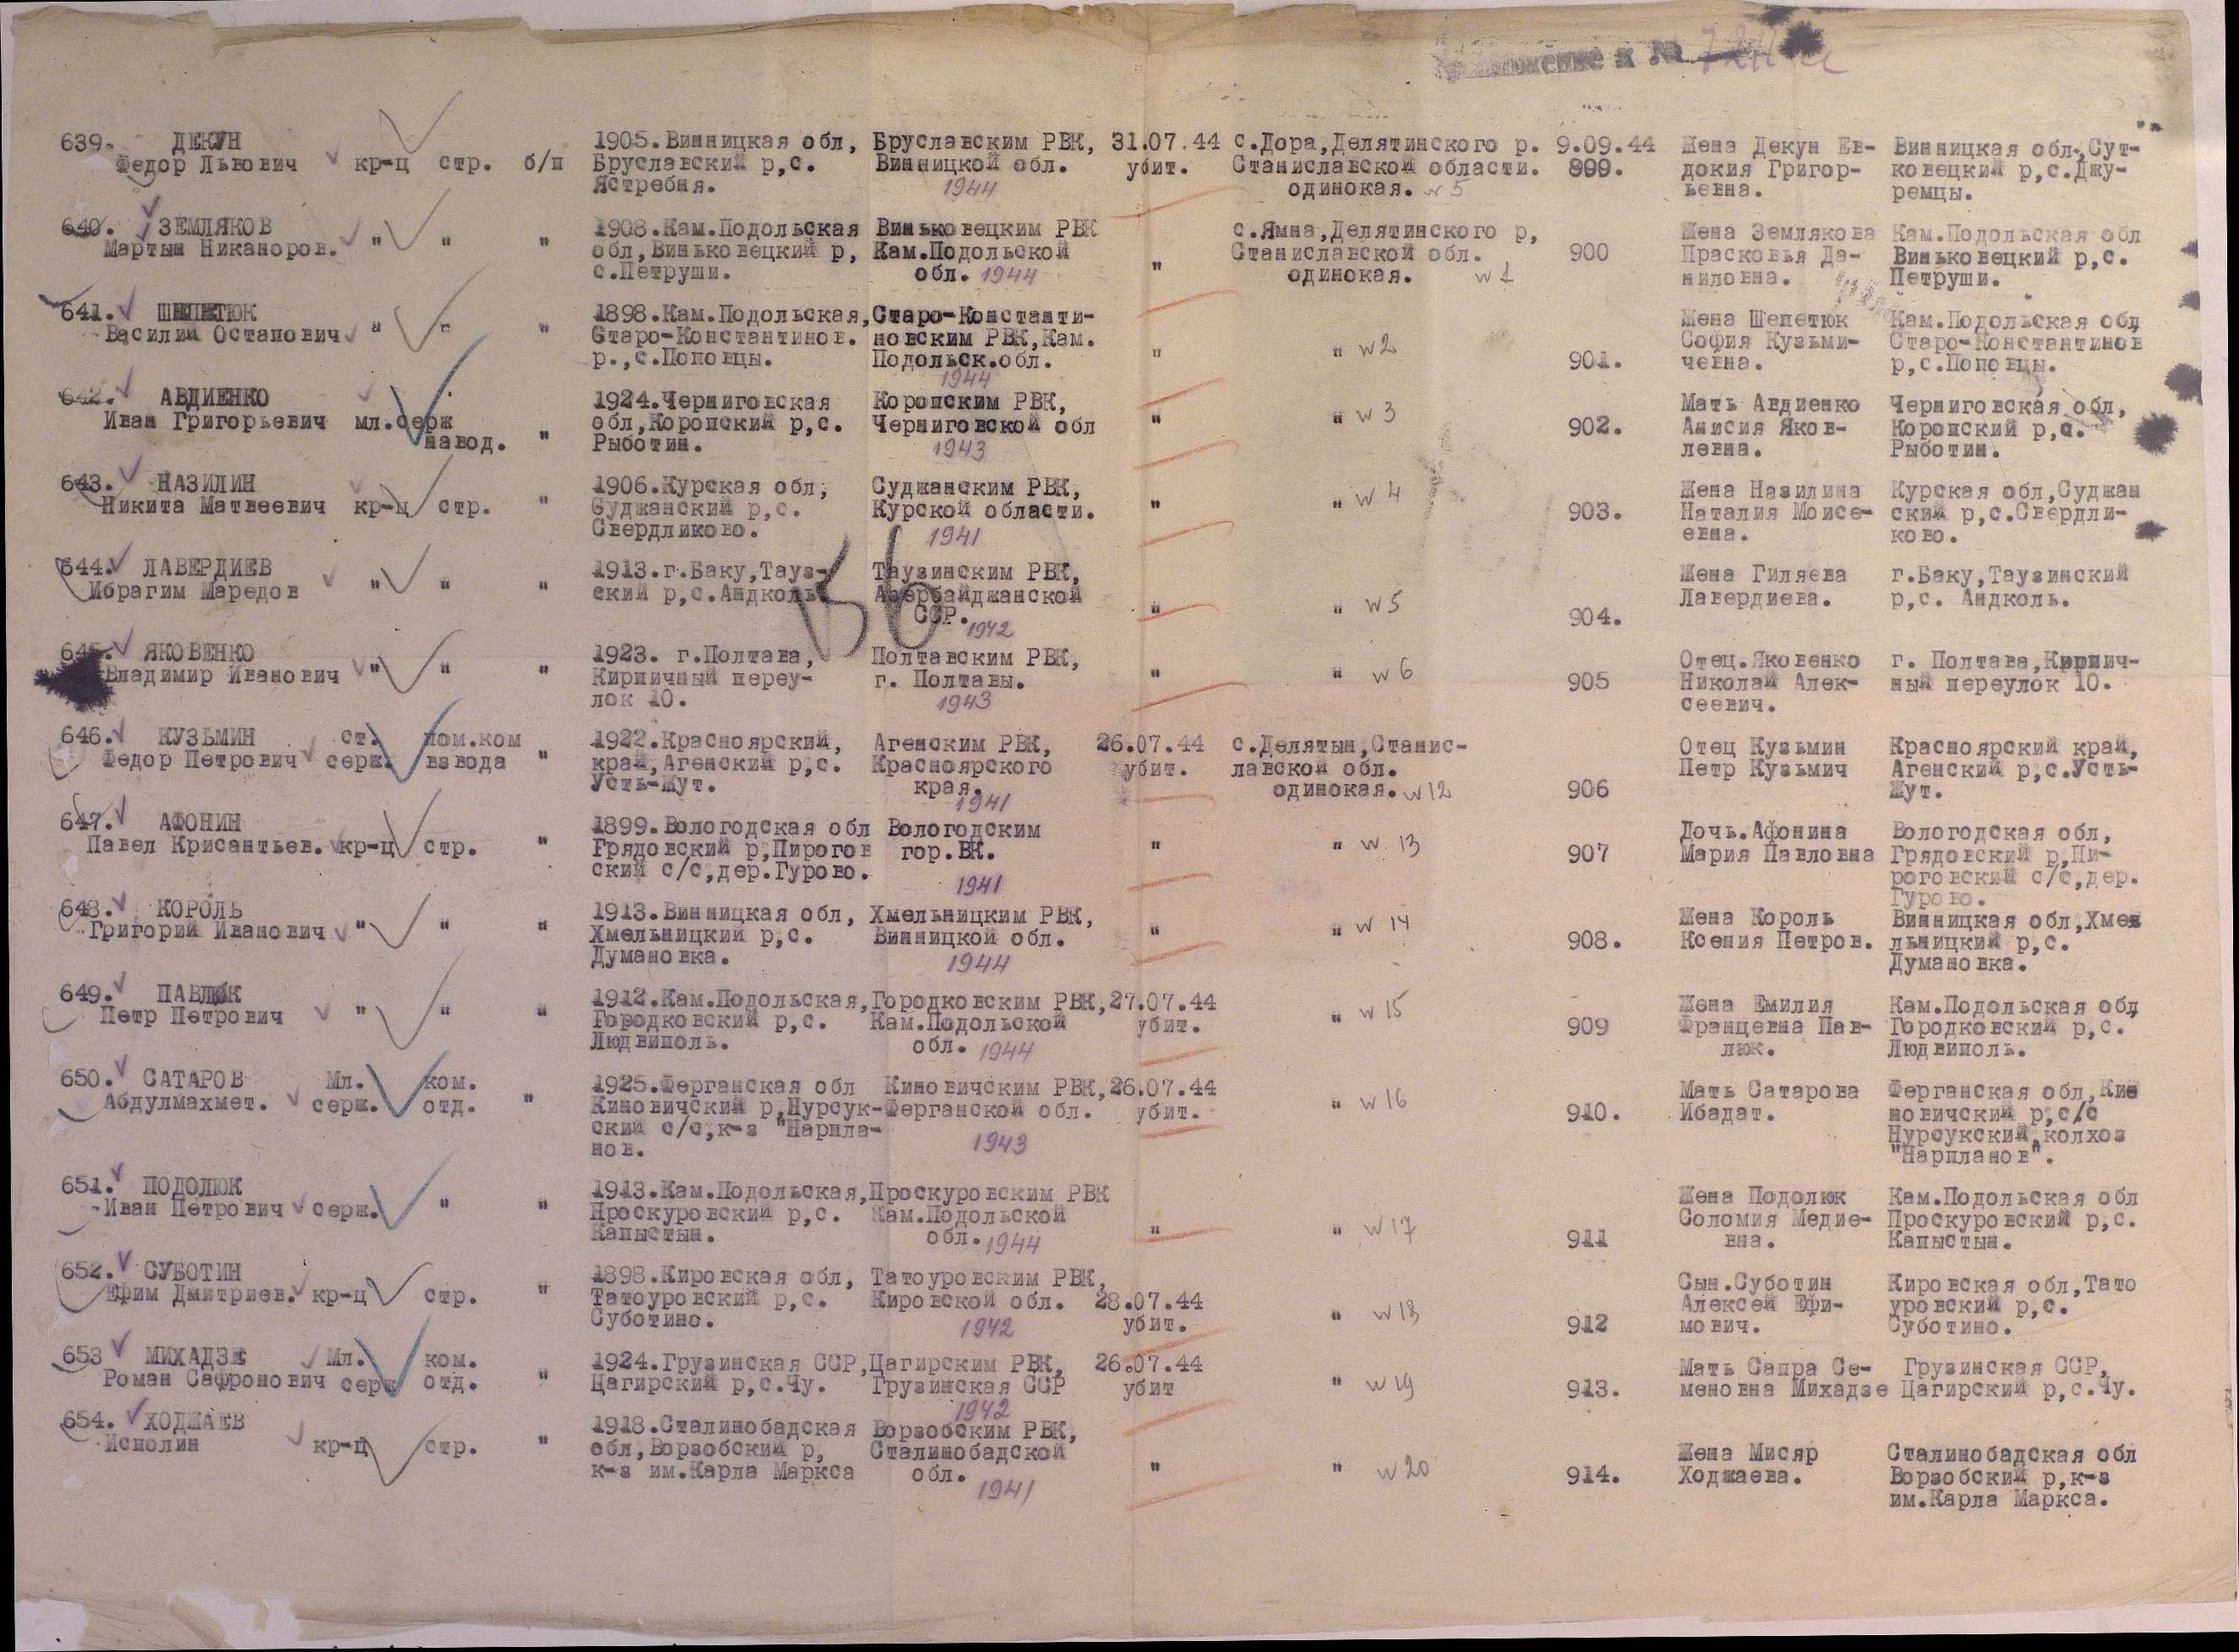 ложение к № 724с
639. ДЕКУН 1905.Винницкая обл, Бруславским РВК, 31.07.44 с.Дора,Делятинского р. 9.09.44 Жена Декун Ев- Винницкая обл,Сут-
Федор Львович кр-ц стр. б/п Бруславский р,с. Винницкой обл. убит. Станиславской области. 899. докия Григор- ковецкий р,с.Джу-
Ястребня. 1944 одинокая. w 5 ьевна. ремцы.
640. ЗЕМЛЯКОВ 1908.Кам.Подольская Виньковецким РВК с.Ямна,Делятинского р, Жена Землякова Кам.Подольская обл
Мартын Никаноров. " " " обл,Виньковецкий р, Кам.Подольской " Станиславской обл. 900 Прасковья Да- Виньковецкий р,с.
с.Петруши. обл. 1944 одинокая. w 1 ниловна. Петруши.
641. ШЕПЕТЮК 1898.Кам.Подольская, Старо-Константи- Жена Шепетюк Кам.Подольская обл
Василий Остапович " " " Старо-Константинов. новским РВК,Кам. " " w 2 София Кузьми- Старо-Константинов
р.,с.Поповцы. Подольск.обл. 901. чевна. р,с.Поповцы.
1944
642. АВДИЕНКО 1924.Черниговская Коропским РВК, Мать Авдиенко Черниговская обл,
Иван Григорьевич мл.серж обл,Коропский р,с. Черниговской обл " " w 3 902. Анисия Яков- Коропский р,с.
навод. " Рыботин. 1943 левна. Рыботин.
643. НАЗИЛИН 1906.Курская обл, Суджанским РВК, Жена Назилина Курская обл,Суджан
Никита Матвеевич кр-ц стр. " Суджанский р,с. Курской области. " " w 4 903. Наталия Моисе- ский р,с.Свердли-
Свердликово. 1941 евна. ково.
644. ЛАВЕРДИЕВ 1913.г.Баку,Тауз- Таузинским РВК, Жена Гиляева г.Баку,Таузинский
Ибрагим Маредов " " " ский р,с.Андколь Азербайджанской " " w 5 Лавердиева. р,с. Андколь.
ССР. 1942 904.
645. ЯКОВЕНКО 1923. г.Полтава, Полтавским РВК, Отец.Яковенко г. Полтава,Кирпич-
Владимир Иванович " " " Кирпичный переу- г. Полтавы. " " w 6 905 Николай Алек- ный переулок 10.
лок 10. 1943 сеевич.
646. КУЗЬМИН ст. пом.ком 1922.Красноярский, Агенским РВК, 26.07.44 с.Делятын,Станис- Отец Кузьмин Красноярский край,
Федор Петрович серж. взвода " край,Агенский р,с. Красноярского убит. лавской обл. Петр Кузьмич Агенский р,с.Усть-
Усть-Жут. края. 1941 одинокая. w 12 906 Жут.
647. АФОНИН 1899.Вологодская обл Вологодским Дочь.Афонина Вологодская обл,
Павел Крисантьев. кр-ц стр. " Грядовский р,Пирогов гор.ВК. " " w 13 907 Мария Павловна Грядовский р,Пи-
ский с/с,дер.Гурово. 1941 роговский с/с,дер.
Гурово.
648. КОРОЛЬ 1913.Винницкая обл, Хмельницким РВК, Жена Король Винницкая обл,Хмел
Григорий Иванович " " " Хмельницкий р,с. Винницкой обл. " " w 14 908. Ксения Петров. льницкий р,с.
Думановка. 1944 Думановка.
649. ПАВЛЮК 1912.Кам.Подольская, Городковским РВК, 27.07.44 Жена Емилия Кам.Подольская обл
Петр Петрович " " " Городковский р,с. Кам.Подольской убит. " w 15 909 Францевна Пав- Городковский р,с.
Людвиполь. обл. 1944 люк. Людвиполь.
650. САТАРОВ Мл. ком. 1925.Ферганская обл Киновичским РВК, 26.07.44 Мать Сатарова Ферганская обл,Ки
Абдулмахмет. серж. отд. " Киновичский р,Нурсук- Ферганской обл. убит. " w 16 910. Ибадат. новичский р,с/с
ский с/с,к-з "Нарпла- 1943 Нурсукский,колхоз
нов. "Нарпланов".
651. ПОДОЛЮК 1913.Кам.Подольская, Проскуровским РВК Жена Подолюк Кам.Подольская обл
Иван Петрович серж. " " Проскуровский р,с. Кам.Подольской " " w 17 Соломия Медие- Проскуровский р,с.
Капыстын. обл. 1944 911 вна. Капыстын.
652. СУБОТИН 1898.Кировская обл, Татоуровским РВК, Сын.Суботин Кировская обл,Тато
Ефим Дмитриев. кр-ц стр. " Татоуровский р,с. Кировской обл. 28.07.44 " w 18 Алексей Ефи- уровский р,с.
Суботино. 1942 убит. 912 мович. Суботино.
653 МИХАДЗЕ Мл. ком. 1924.Грузинская ССР, Цагирским РВК, 26.07.44 Мать Сапра Се- Грузинская ССР,
Роман Сафронович серж отд. " Цагирский р,с.Чу. Грузинская ССР убит " w 19 913. меновна Михадзе Цагирский р,с.Чу.
1942
654. ХОДЖАЕВ 1918.Сталинобадская Ворзобским РВК,
Исполин кр-ц стр. " обл,Ворзобский р, Сталинобадской Жена Мисяр Сталинобадская обл
к-з им.Карла Маркса обл. " " w 20 914. Ходжаева. Ворзобский р,к-з
1941 им.Карла Маркса.